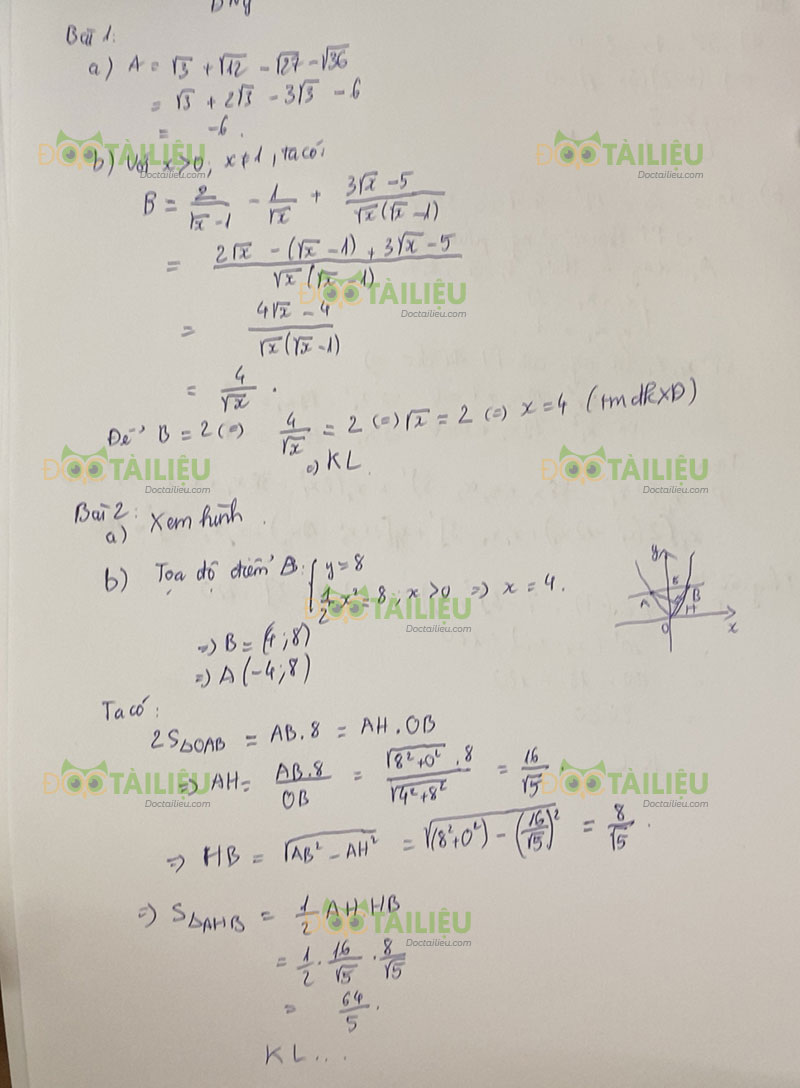 Bài 1:
a) A = √3 + √12 - √27 - √36
= √3 + 2√3 - 3√3 - 6
= -6.
ĐỌC TÀI LIỆU
Doctailieu.com
ĐỌC TÀI LIỆU
Doctailieu.com
b) Với x>0, x≠1, ta có:
B = 2/(√x -1) - 1/√x + (3√x -5)/(√x(√x -1))
= (2√x - (√x -1) + 3√x -5)/(√x(√x -1))
ĐỌC TÀI LIỆU
Doctailieu.com
= (4√x - 4)/(√x(√x -1))
= 4/√x.
Để B = 2 (=) 4/√x = 2 (=) √x = 2 (=) x = 4 (tmđkxđ)
=) KL.
ĐỌC TÀI LIỆU
Doctailieu.com
ĐỌC TÀI LIỆU
Doctailieu.com
Bài 2:
a) Xem hình.
b) Tọa độ điểm B: { y = 8
1/2 x² = 8; x > 0 =) x = 4.
y
E
A
B
H
O
x
ĐỌC TÀI LIỆU
Doctailieu.com
=) B = (4; 8)
=) A (-4; 8)
Ta có:
2S△OAB = AB.8 = AH.OB
=) AH = AB.8/OB = √(8²+0²).8/√(4²+8²) = 16/√5.
ĐỌC TÀI LIỆU
Doctailieu.com
ĐỌC TÀI LIỆU
Doctailieu.com
=) HB = √(AB² - AH²) = √((8²+0²) - (16/√5)²) = 8/√5.
=) S△AHB = 1/2 AH HB
ĐỌC TÀI LIỆU
Doctailieu.com
= 1/2 . 16/√5 . 8/√5
= 64/5.
KL...